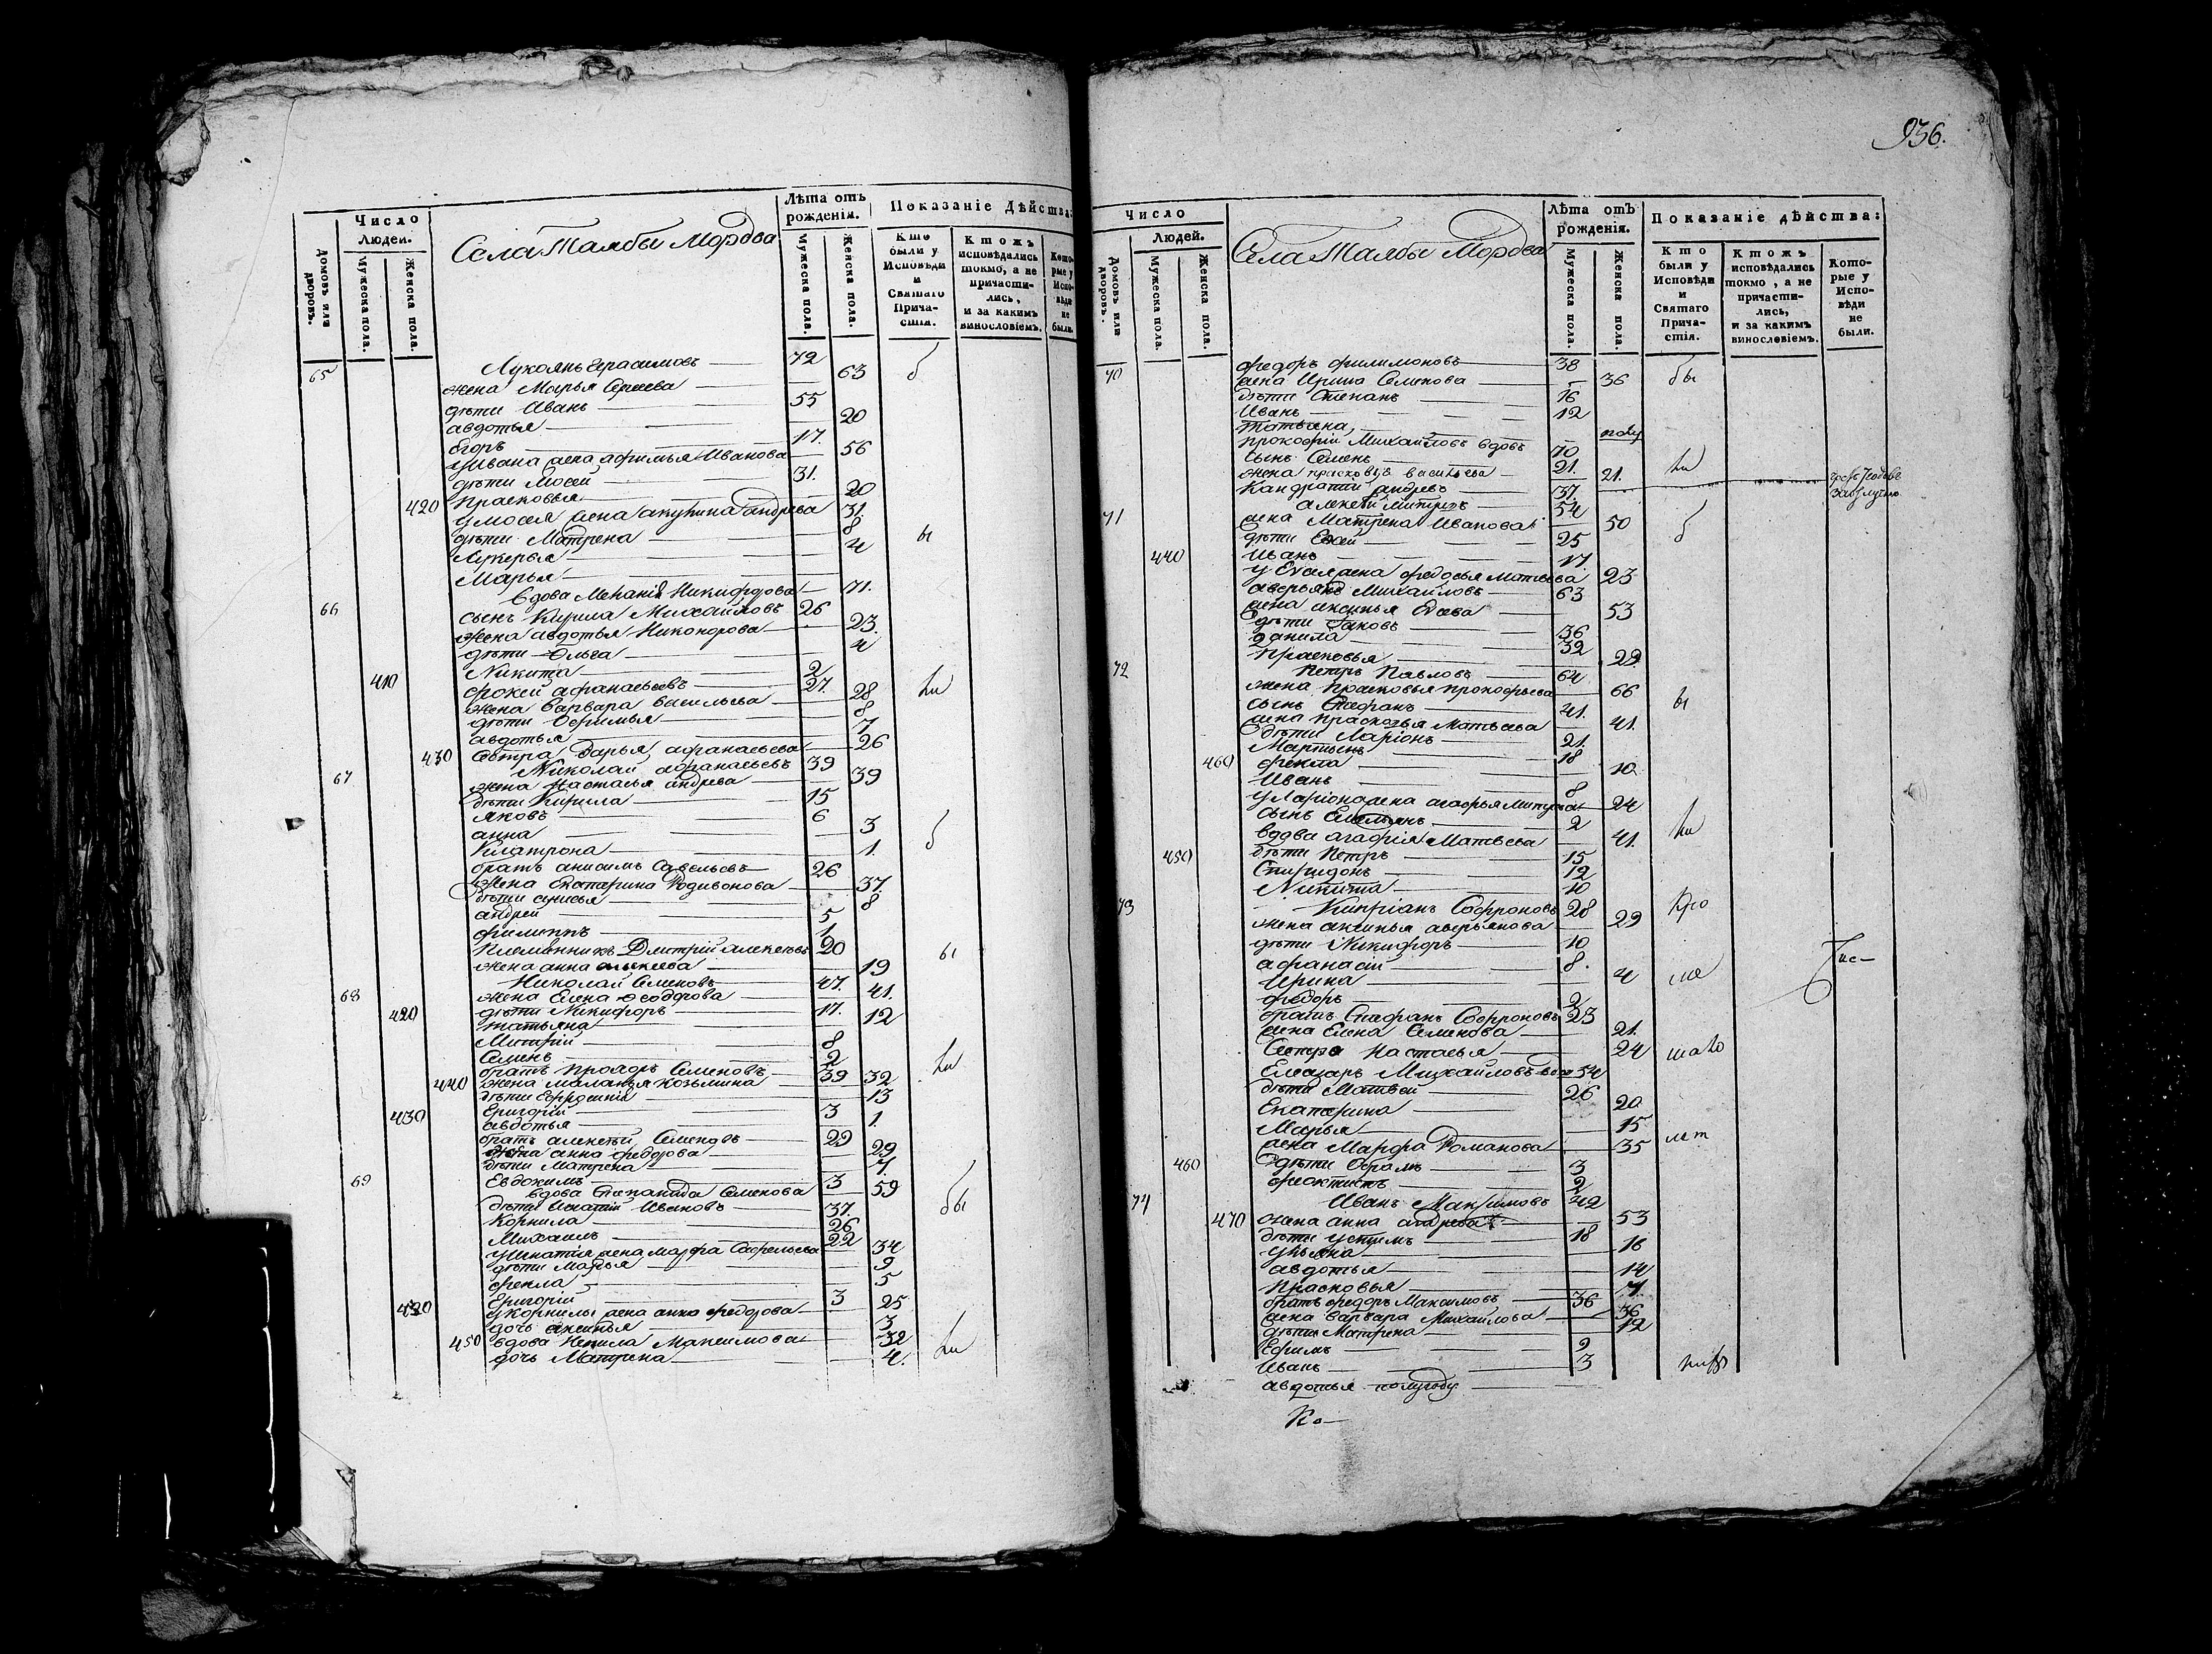 936.
Число
Людей.
Домовъ или дворовъ.
Мужеска пола.
Женска пола.
Села Тамбы Мордва
Лѣта отъ рожденія.
Мужеска пола.
Женска пола.
Показаніе Дѣйства:
Кто были у Исповѣди и Святаго Причастія.
Ктожъ исповѣдались токмо, а не причастились, и за какимъ винословіемъ.
Которые у Исповѣди не были.
65 Лукоянъ Герасимовъ 72
жена Марья Сергеева 63 б
дѣти Иванъ 55
авдотья 20
Егоръ 17.
у Ивана жена афимья Иванова 56
дѣти Мосей 31.
420 Прасковья 20
у мосея жена акулина андреева 31.
дѣти Матрена 8 ы
Лукерья 4
Марья
66 вдова Меланія Никифорова 71.
сынъ Кирила Михайловъ 26
жена авдотья Никонорова 23.
дѣти Ольга 4
410 Никита 2
фокей афанасьевъ 27. ли
жена варвара васильева 28
дѣти Офимья 8
авдотья 7
430 Сестра Дарья афанасьева 26
67 Николай афанасьевъ 39
жена Настасья андрева 39
дѣти Кирила 15
яковъ 6
анна 3 б
Клатрона 1.
братъ анисимъ Савельевъ 26
жена Екатерина Родивонова 37.
дѣти 8
андрей 5
филиппъ 1
Племянникъ Дмитрій алексеевъ 20 ы
жена анна алексеева 19
68 Николай Семеновъ 47.
жена Елена феодорова 41.
420 дѣти Никифоръ 17.
татьяна 12
Митрій 8
Семенъ 2 ли
братъ прохоръ Семеновъ 39
440 жена маланья козьмина 32
дѣти Ефросинія 13
430 Григорій 3
авдотья 1
братъ алексей Семеновъ 29
жена анна федорова 29
дѣти Матрена 7.
Евдокимъ 3
69 вдова Степанида Семенова 59
дѣти Игнатій Ивановъ 37. бы
Корнила 26
Михаилъ 22
у игнатія жена марфа Савельева 34
дѣти Марья 9
фекла 5
430 Григорій 3
у Корнилы жена анна федорова 25
дочь аксинья 3
450 вдова Ненила Максимова 32
дочь Матрена 4. ли
Число
Людей.
Домовъ или дворовъ.
Мужеска пола.
Женска пола.
Села Тамбы Мордва
Лѣта отъ рожденія.
Мужеска пола.
Женска пола.
Показаніе дѣйства:
Кто были у Исповѣди и Святаго Причастія.
Ктожъ исповѣдались токмо, а не причастились, и за какимъ винословіемъ.
Которые у Исповѣди не были.
70 федоръ филимоновъ 38
жена Ирина Семенова 36 бы
дѣти Степанъ 16
Иванъ 12
татьяна, полу
прокофій Михайловъ вдовъ 70
сынъ Семенъ 21. ли
жена прасковья васильева 21.
Кандратій андревъ 37.
71 алексей митревъ 54
жена Матрена Иванова 50 б
дѣти Евсей 25
440 Иванъ 17.
у Евсея жена федосья матвева 23
аверьянъ Михайловъ 63
жена аксинья Евсева 53
дѣти яковъ 36
данила 32
прасковья 29
72 петръ Павловъ 64
жена прасковья прокофьева 66
сынъ Стефанъ 41. ы
жена прасковья матвеева 41.
дѣти Ларіонъ 21.
Мартынъ 18
460 фекла 10
Иванъ 8
у Ларіона жена агафья митрева 24
сынъ Емельянъ 2
вдова агафія Матвеева 41. ли
450 дѣти Петръ 15
Спиридонъ 12
Никита 10
73 Кипріанъ Софроновъ 28 кро
жена аксинья аверьянова 29
дѣти Никифоръ 10
афанасій 8.
Ирина 4 ме
федоръ 2
братъ Стефанъ Софроновъ 23
жена Елена Семенова 21.
Сестра Настасья 24
Елеазаръ Михайловъ 54
дѣти Матвей 26
Екатерина 20
Марья 15
жена Марфа Романова 35 лет
460 дѣти Обрамъ 3
феоктистъ 2
74 Иванъ Максимовъ 42
470 жена анна андреева 53
дѣти устимъ 18
ульяна 16
авдотья 14
прасковья 7.
братъ федоръ Максимовъ 36
жена варвара Михайлова 36
дѣти Матрена 12
Ефимъ 9
Иванъ 3
авдотья полугоду
Ко—